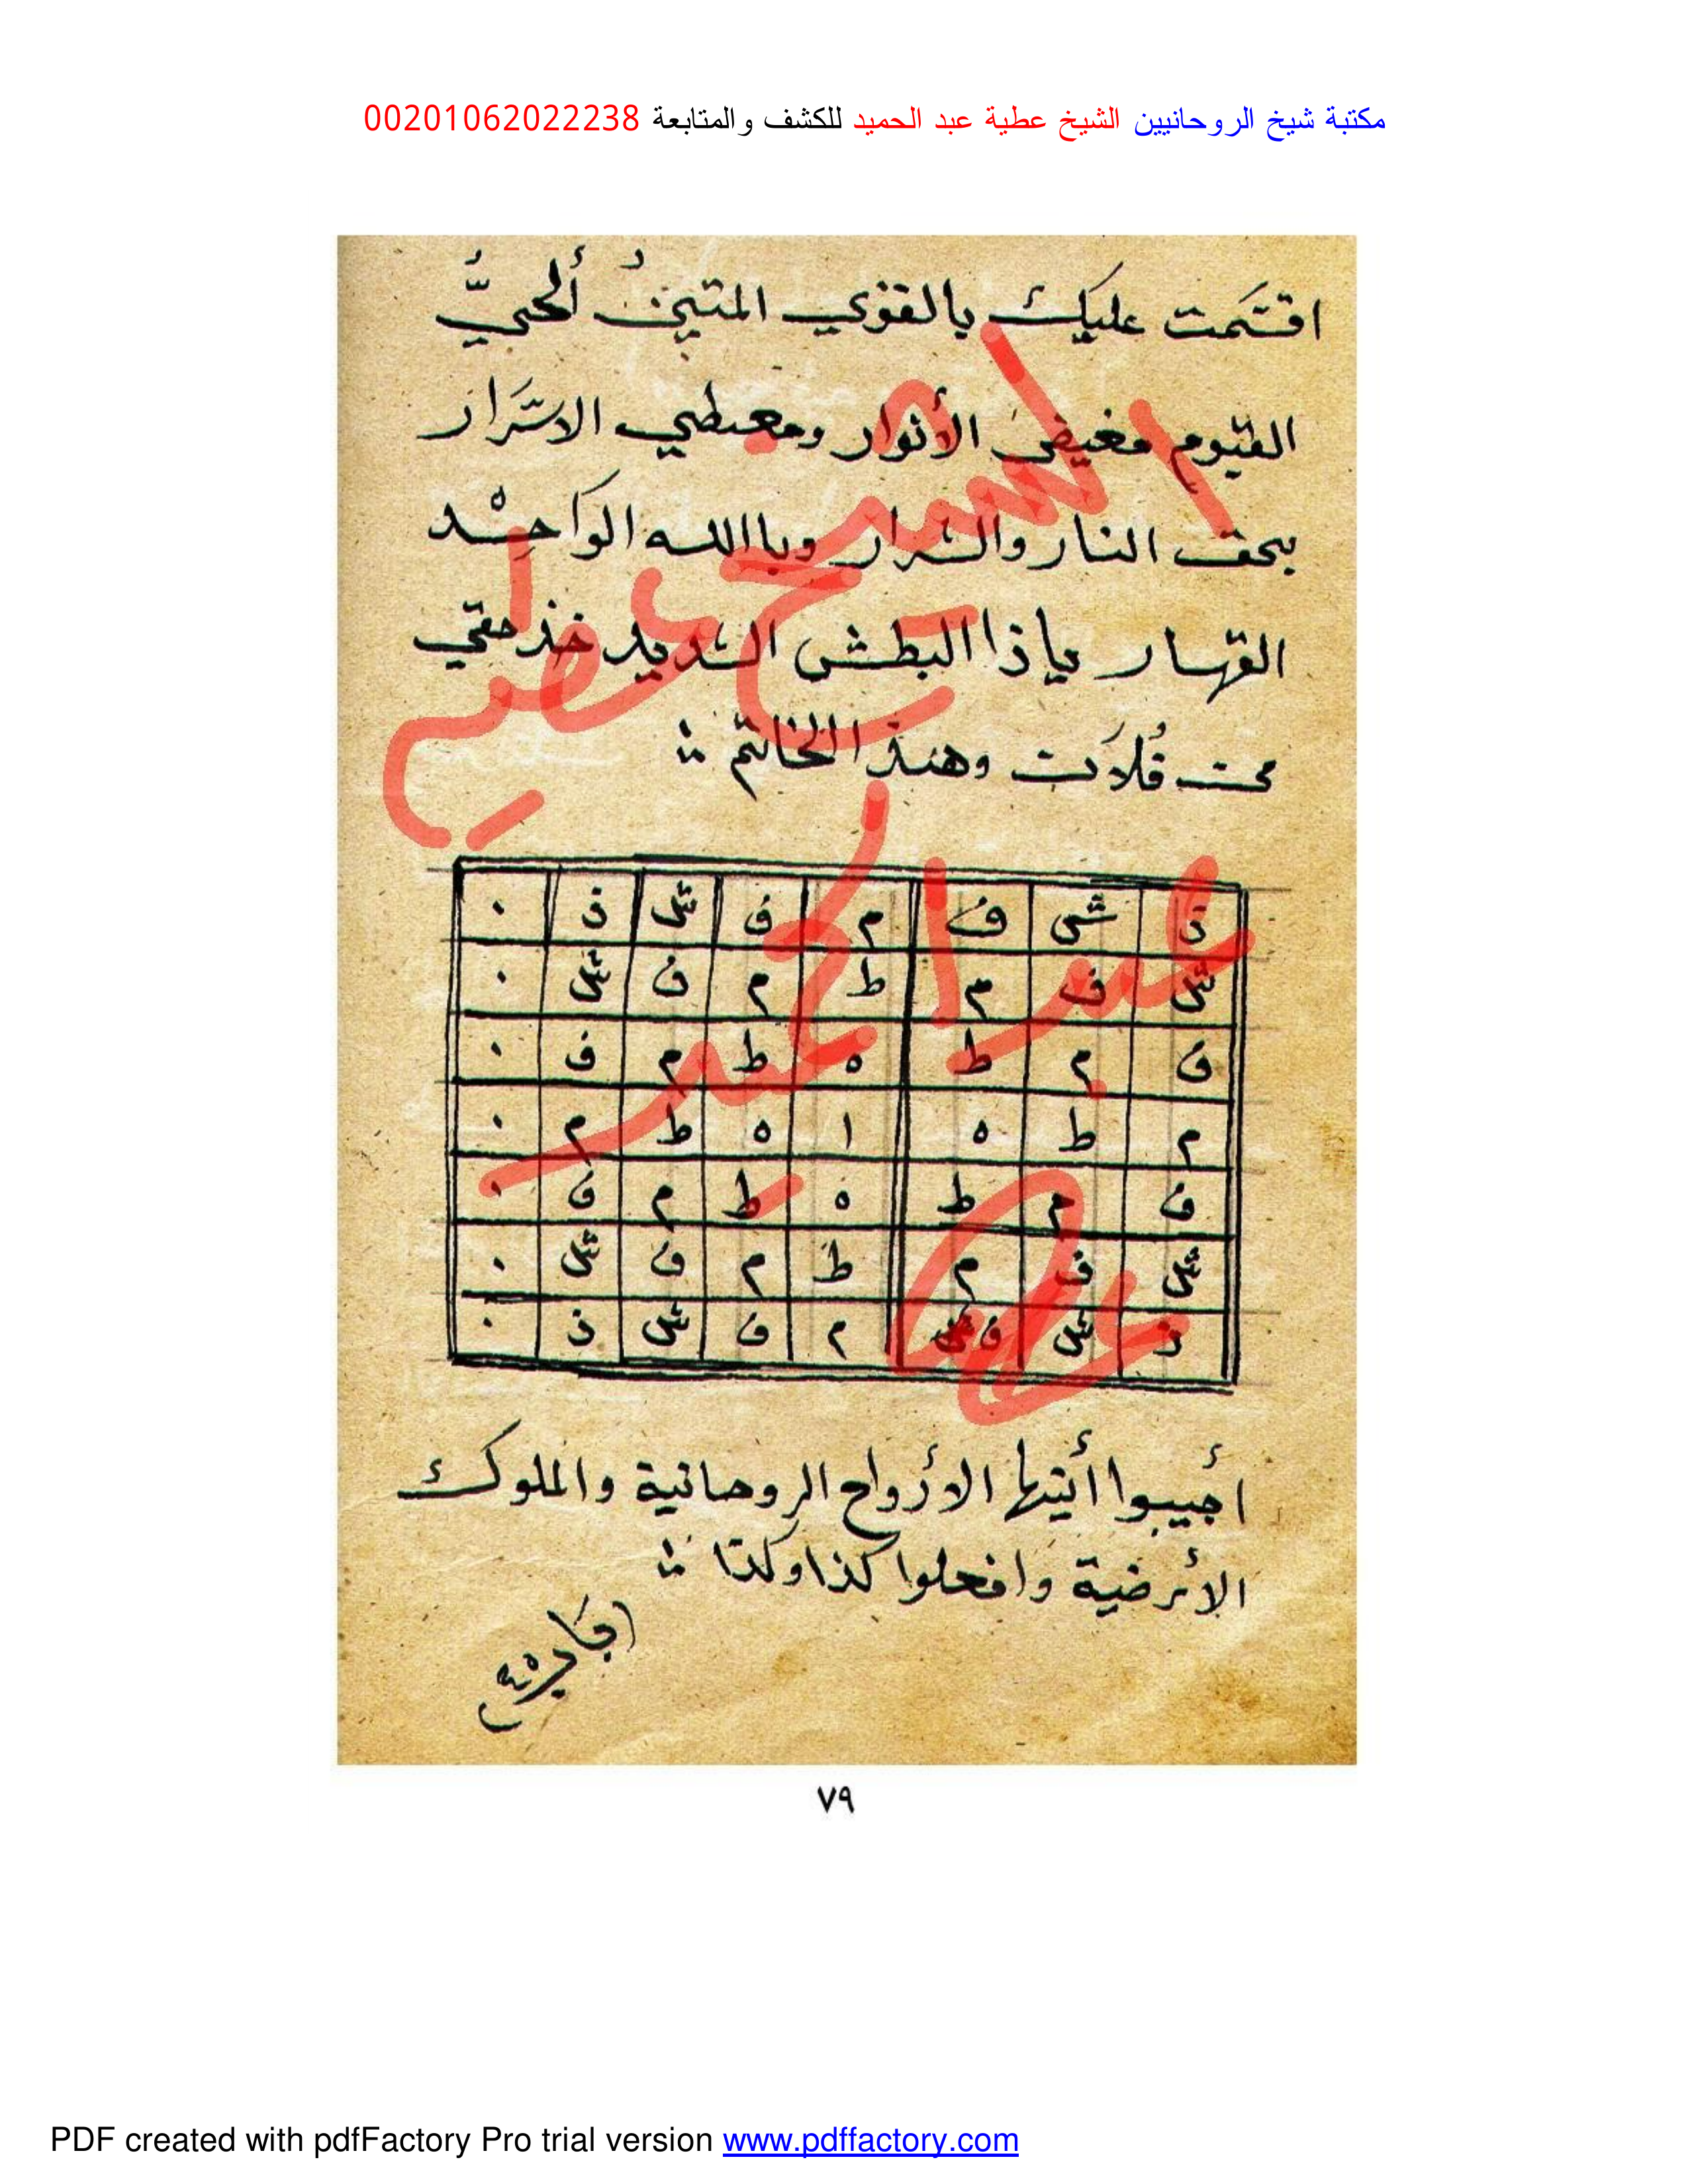 مكتبة شيخ الروحانيين الشيخ عطية عبد الحميد للكشف والمتابعة 00201062022238
اقسمت عليك بالقوي المتين ألحيُّ
القيوم مغيض الأنوار ومعطي الاسرار
بحق النار والشرار وباالله الواحد
القهار ياذا البطش الشديد خذ حقي
من فلان وهذا الخاتم
ن ش ف م ف ش ن ٠
ش ف م ط م ف ش ٠
ف م ط ه ط م ف ٠
م ط ه ا ه ط م ٠
ف م ط ه ط م ف ٠
ش ف م ط م ف ش ٠
ن ش ف م ف ش ن ٠
أجيبوا أيتها الأرواح الروحانية والملوك
الأرضية وافعلوا كذا وكذا
الشيخ عطيه
عبد الحميد
٧٩
PDF created with pdfFactory Pro trial version www.pdffactory.com